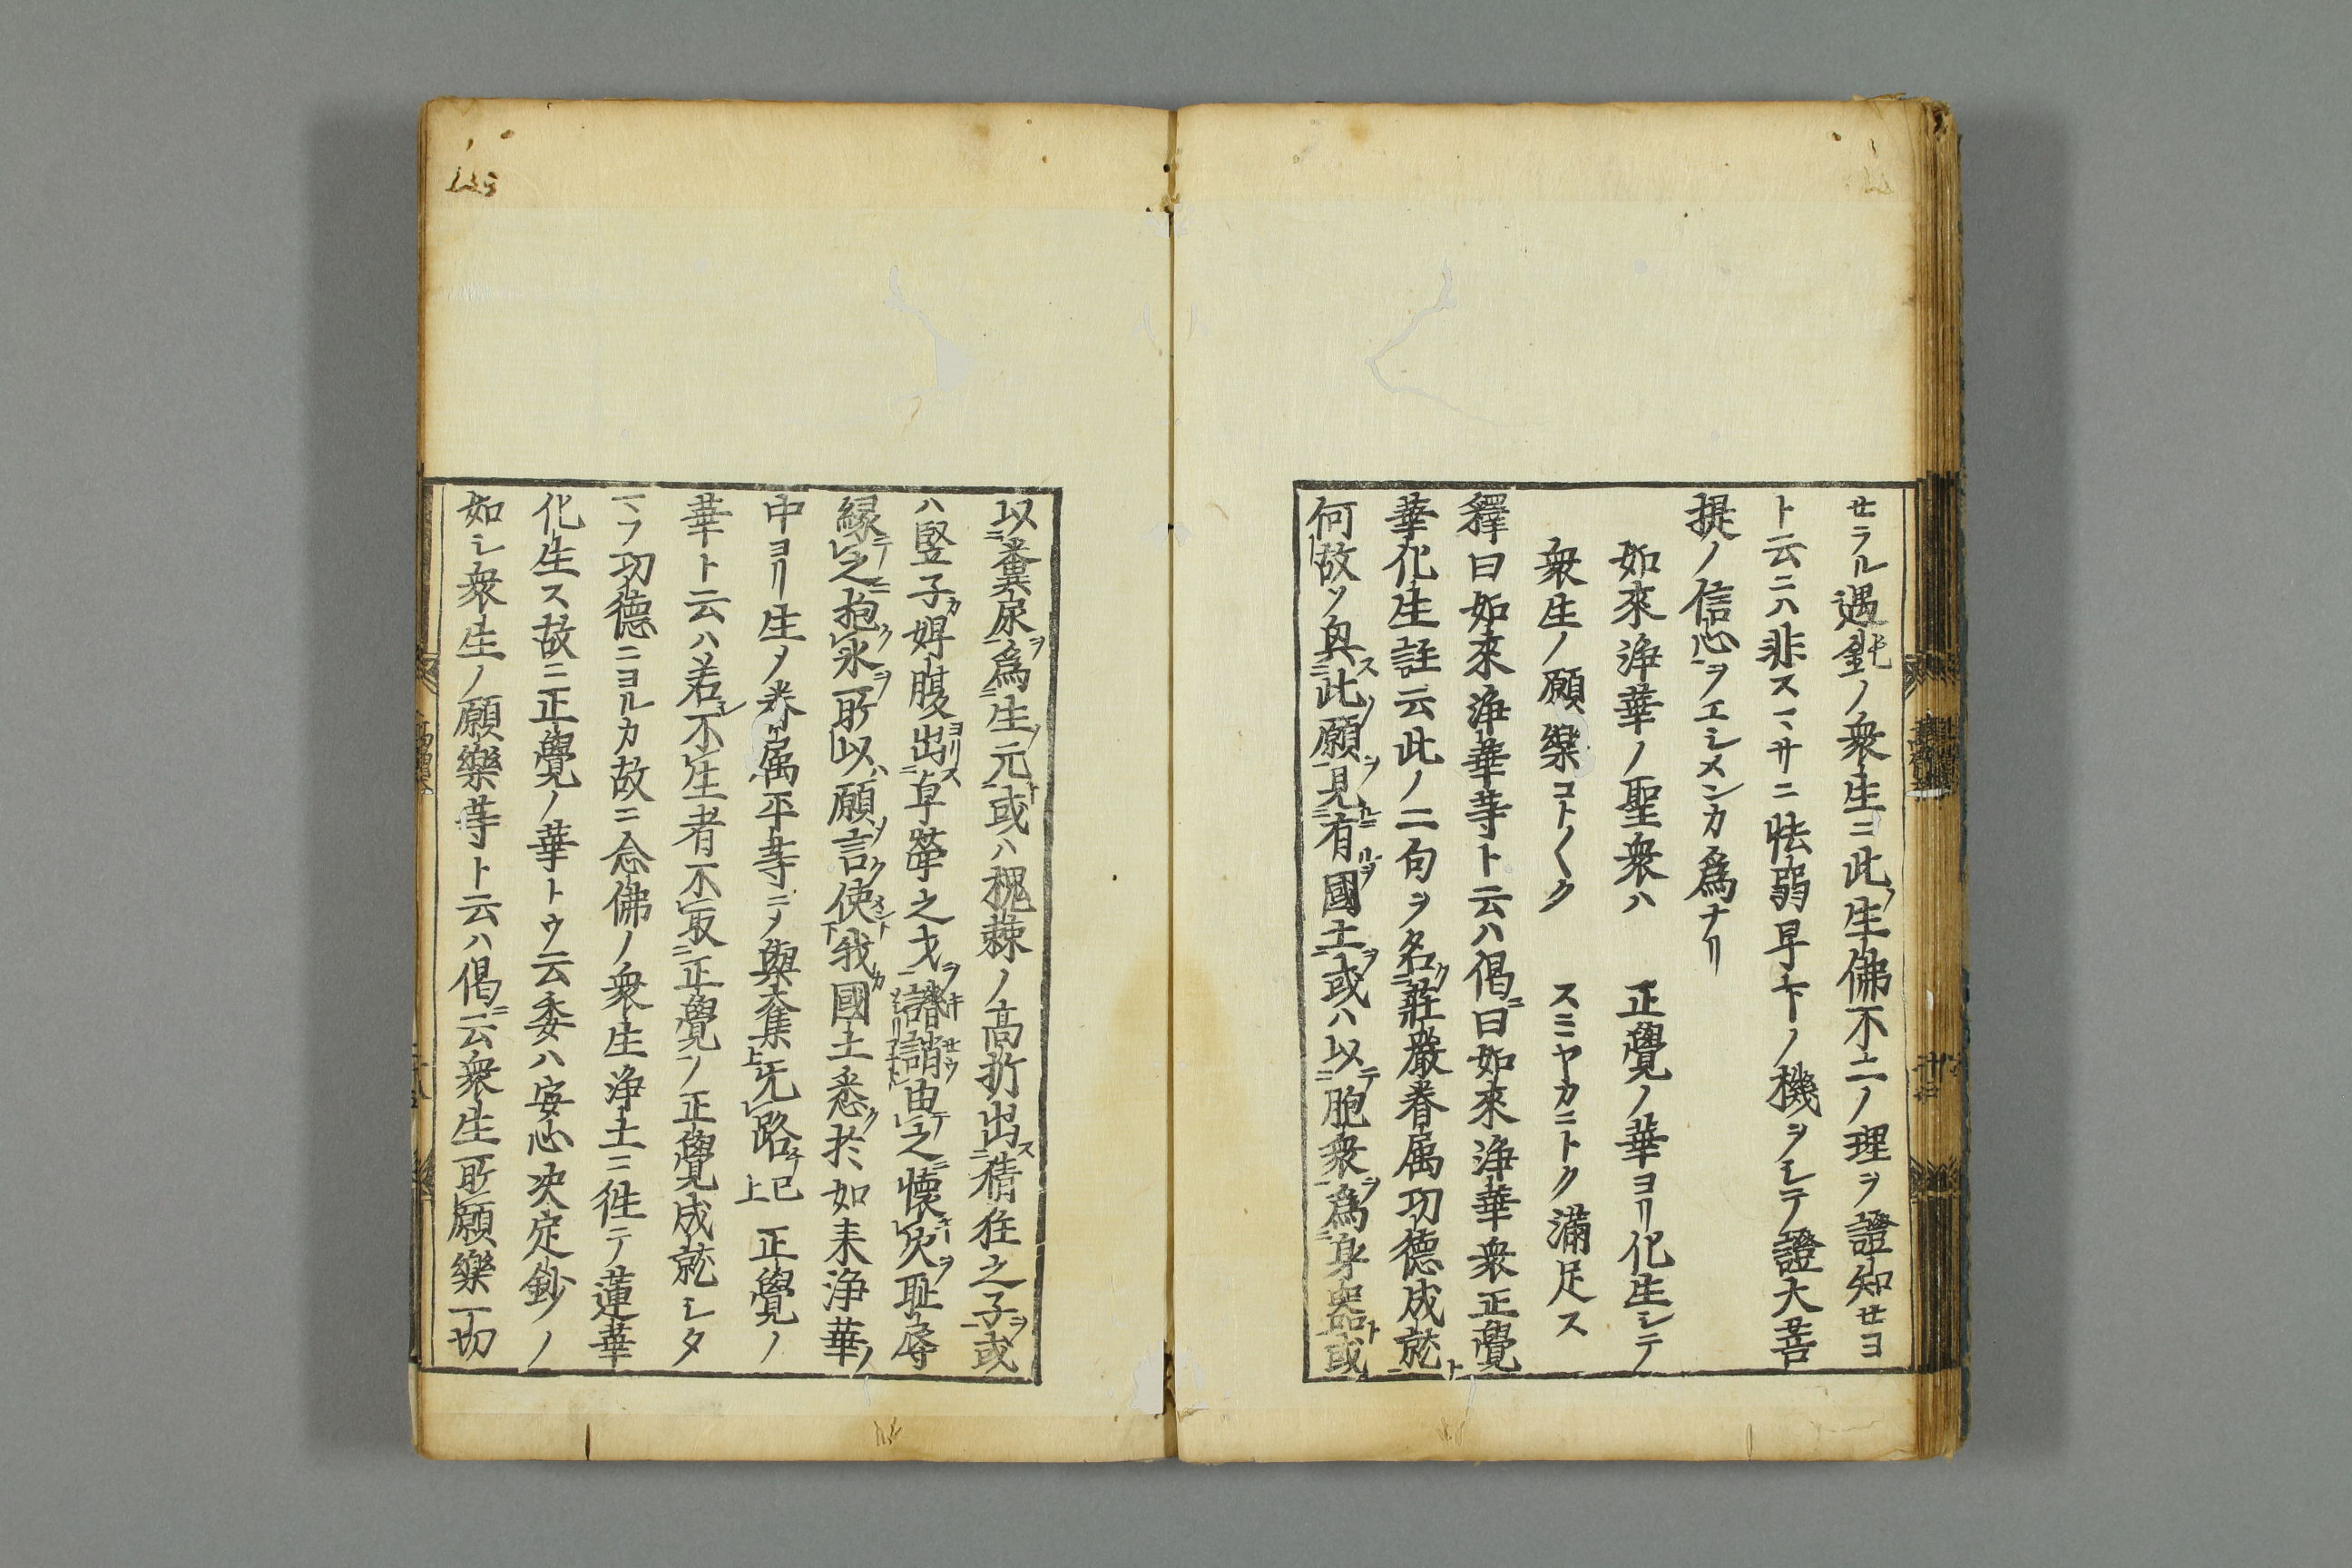 セラル遇鈍ノ衆生ニ此生佛不二ノ理ヲ證知セヨ
ト云ニハ非スマサニ怯弱早下ノ機ヲシテ證大菩
提ノ信心ヲエシメンカ爲ナリ
如來淨華ノ聖衆ハ 正覺ノ華ヨリ化生シテ
衆生ノ願樂コト〱ク スミヤカニトク滿足ス
釋曰如來淨華等ト云ハ偈ニ曰如來淨華衆正覺
華化生註云此ノ二句ヲ名ク莊嚴眷属功德成就ト
何故ソ興ス此ノ願ヲ見ルニ有ル國土ヲ或ハ以テ胞衆ヲ爲身器ト或
以糞尿ヲ爲生元ト或ハ槐棘ノ高折出ス猜狂之子ヲ或
ハ竪子カ婢腹ヨリ出ス卓犖之才ヲ譏誚由テ之ニ懷火ヲ耻辱
縁テ之ニ抱ク氷ヲ所以ハ願ソ言ク使メント我カ國土悉ク於如来淨華ノ
中ヨリ生メ眷属平等ニメ與奪无路已上 正覺ノ
華ト云ハ若シ不生者不取正覺ノ正覺成就シタ
マフ功德ニヨルカ故ニ念佛ノ衆生淨土ニ徃テ蓮華
化生ス故ニ正覺ノ華トウ云委ハ安心决定鈔ノ
如シ衆生ノ願樂等ト云ハ偈ニ云衆生所願樂一切